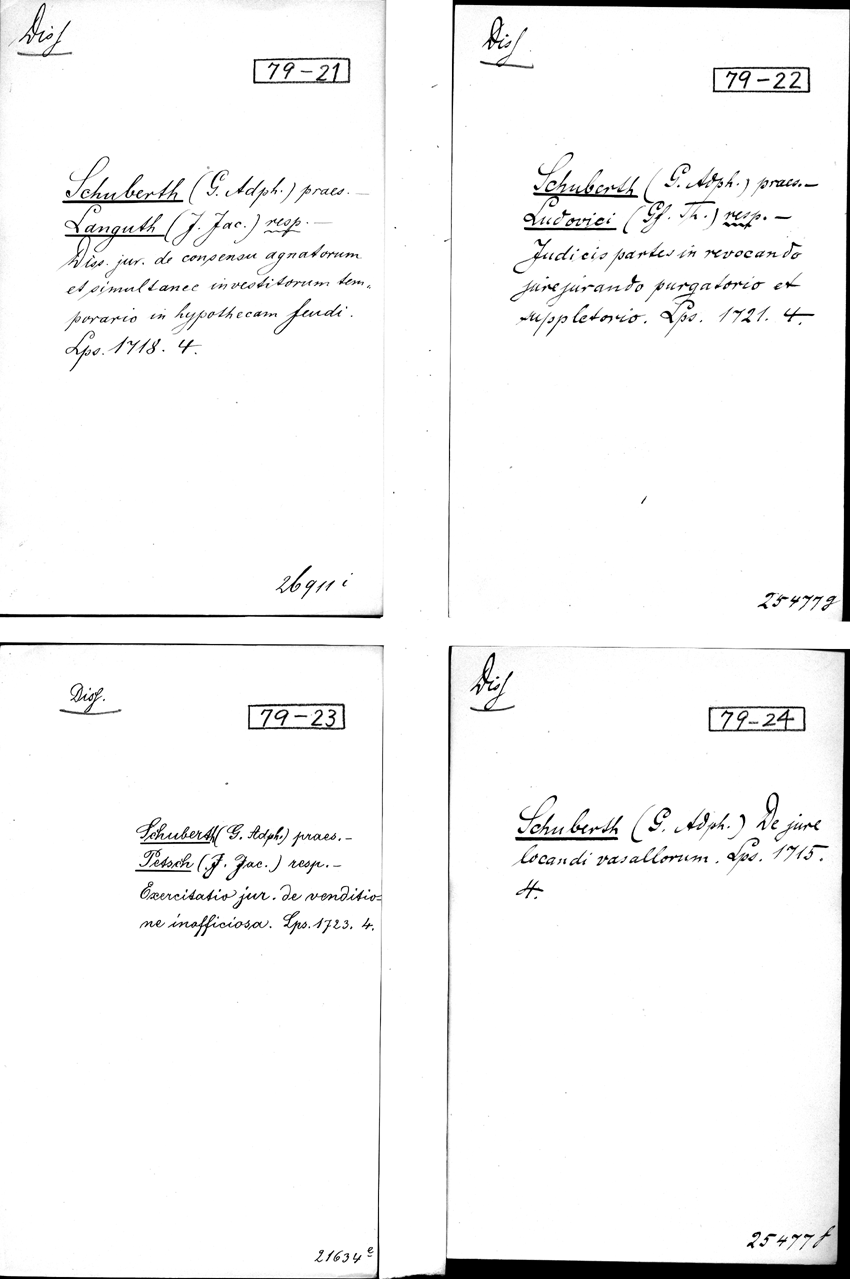 Diss
79-21
Schuberth (G. Adph.) praes. —
Languth (J. Jac.) resp. —
Diss. jur. de consensu agnatorum
et simultanee investitorum tem-
porario in hypothecam feudi.
Lps. 1718. 4.
26911 i
Diss
79-22
Schuberth (G. Adph.) praes. —
Ludovici (Gf. Th.) resp. —
Judicis partes in revocando
jurejurando purgatorio et
suppletorio. Lps. 1721. 4.
25477g
Diss.
79-23
Schuberth (G. Adph.) praes. —
Petsch (J. Jac.) resp. —
Exercitatio jur. de venditio-
ne inofficiosa. Lps. 1723. 4.
21634 e
Diss
79-24
Schuberth (G. Adph.) De jure
locandi vasallorum. Lps. 1715.
4.
25477 f